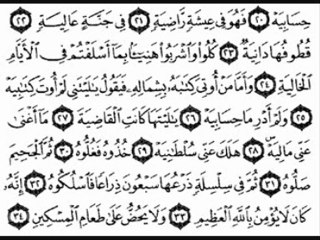 حِسَابِيَهْ ﴿٢٠﴾ فَهُوَ فِي عِيشَةٍ رَّاضِيَةٍ ﴿٢١﴾ فِي جَنَّةٍ عَالِيَةٍ ﴿٢٢﴾
قُطُوفُهَا دَانِيَةٌ ﴿٢٣﴾ كُلُوا۟ وَٱشْرَبُوا۟ هَنِيٓـًٔۢا بِمَآ أَسْلَفْتُمْ فِي ٱلْأَيَّامِ
ٱلْخَالِيَةِ ﴿٢٤﴾ وَأَمَّا مَنْ أُوتِيَ كِتَٰبَهُۥ بِشِمَالِهِۦ فَيَقُولُ يَٰلَيْتَنِي لَمْ أُوتَ كِتَٰبِيَهْ
﴿٢٥﴾ وَلَمْ أَدْرِ مَا حِسَابِيَهْ ﴿٢٦﴾ يَٰلَيْتَهَا كَانَتِ ٱلْقَاضِيَةَ ﴿٢٧﴾ مَآ أَغْنَىٰ
عَنِّي مَالِيَهْ ﴿٢٨﴾ هَلَكَ عَنِّي سُلْطَٰنِيَهْ ﴿٢٩﴾ خُذُوهُ فَغُلُّوهُ ﴿٣٠﴾ ثُمَّ ٱلْجَحِيمَ
صَلُّوهُ ﴿٣١﴾ ثُمَّ فِي سِلْسِلَةٍ ذَرْعُهَا سَبْعُونَ ذِرَاعًا فَٱسْلُكُوهُ ﴿٣٢﴾ إِنَّهُۥ
كَانَ لَا يُؤْمِنُ بِٱللَّهِ ٱلْعَظِيمِ ﴿٣٣﴾ وَلَا يَحُضُّ عَلَىٰ طَعَامِ ٱلْمِسْكِينِ ﴿٣٤﴾